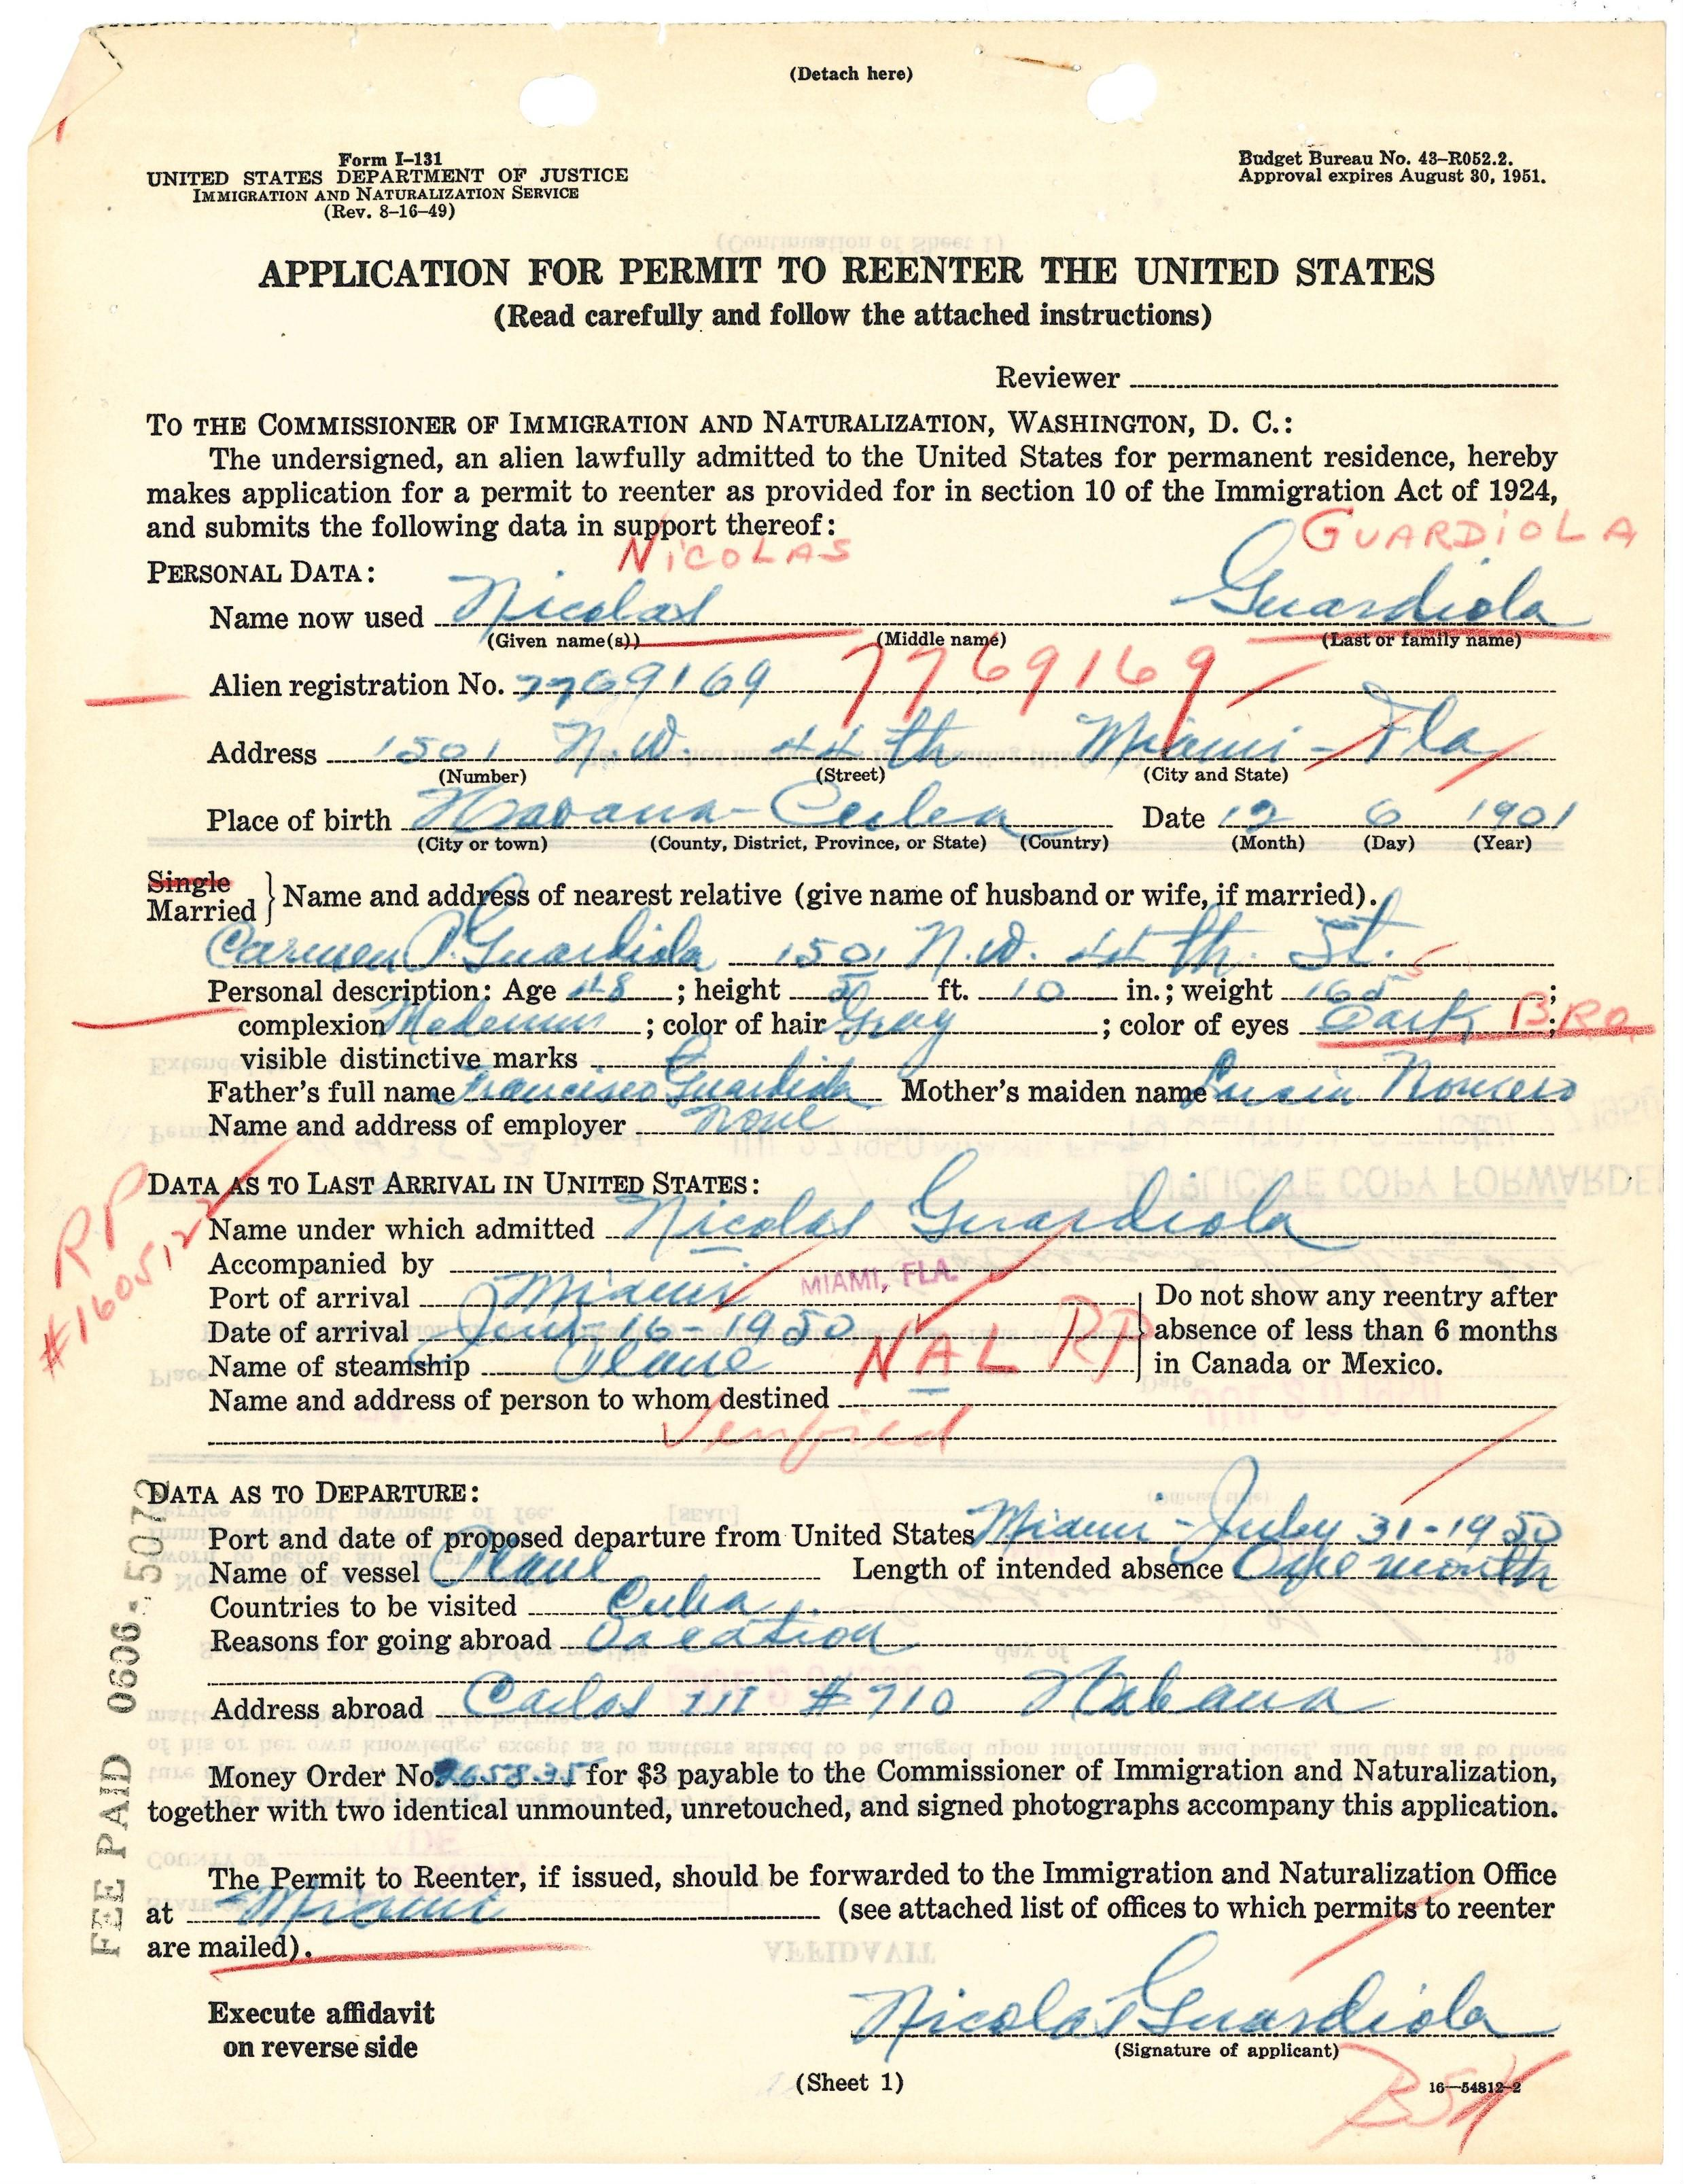 (Detach here)
Form I–131
UNITED STATES DEPARTMENT OF JUSTICE
IMMIGRATION AND NATURALIZATION SERVICE
(Rev. 8–16–49)
Budget Bureau No. 43–R052.2.
Approval expires August 30, 1951.
APPLICATION FOR PERMIT TO REENTER THE UNITED STATES
(Read carefully and follow the attached instructions)
Reviewer
TO THE COMMISSIONER OF IMMIGRATION AND NATURALIZATION, WASHINGTON, D. C.:
The undersigned, an alien lawfully admitted to the United States for permanent residence, hereby
makes application for a permit to reenter as provided for in section 10 of the Immigration Act of 1924,
and submits the following data in support thereof:
NICOLAS GUARDIOLA
PERSONAL DATA:
Name now used Nicolas Guardiola
(Given name(s)) (Middle name) (Last or family name)
Alien registration No. 7769169 7769169
Address 1501 N.W. 44 th Miami - Fla
(Number) (Street) (City and State)
Place of birth Havana - Cuba Date 12 6 1901
(City or town) (County, District, Province, or State) (Country) (Month) (Day) (Year)
Single
Married } Name and address of nearest relative (give name of husband or wife, if married).
Carmen P. Guardiola 1501 N.W. 44 th. St.
Personal description: Age 48; height 5 ft. 10 in.; weight 165;
complexion ; color of hair Gray; color of eyes Dark BRO;
visible distinctive marks
Father's full name Francisco Guardiola Mother's maiden name Romero
Name and address of employer none
RP
#1605122
DATA AS TO LAST ARRIVAL IN UNITED STATES:
Name under which admitted Nicolas Guardiola
Accompanied by
Port of arrival Miami MIAMI, FLA.
Date of arrival 16-1950
Name of steamship Plane NAL RP
Do not show any reentry after
absence of less than 6 months
in Canada or Mexico.
Name and address of person to whom destined
Verified
DATA AS TO DEPARTURE:
Port and date of proposed departure from United States Miami - July 31-1950
Name of vessel Plane Length of intended absence One month
Countries to be visited Cuba
Reasons for going abroad Vacation
Address abroad Carlos III #710 Habana
FEE PAID 0606-5072
Money Order No. 265835 for $3 payable to the Commissioner of Immigration and Naturalization,
together with two identical unmounted, unretouched, and signed photographs accompany this application.
The Permit to Reenter, if issued, should be forwarded to the Immigration and Naturalization Office
at Miami (see attached list of offices to which permits to reenter
are mailed).
Execute affidavit
on reverse side
Nicolas Guardiola
(Signature of applicant)
(Sheet 1)
16—54812-2